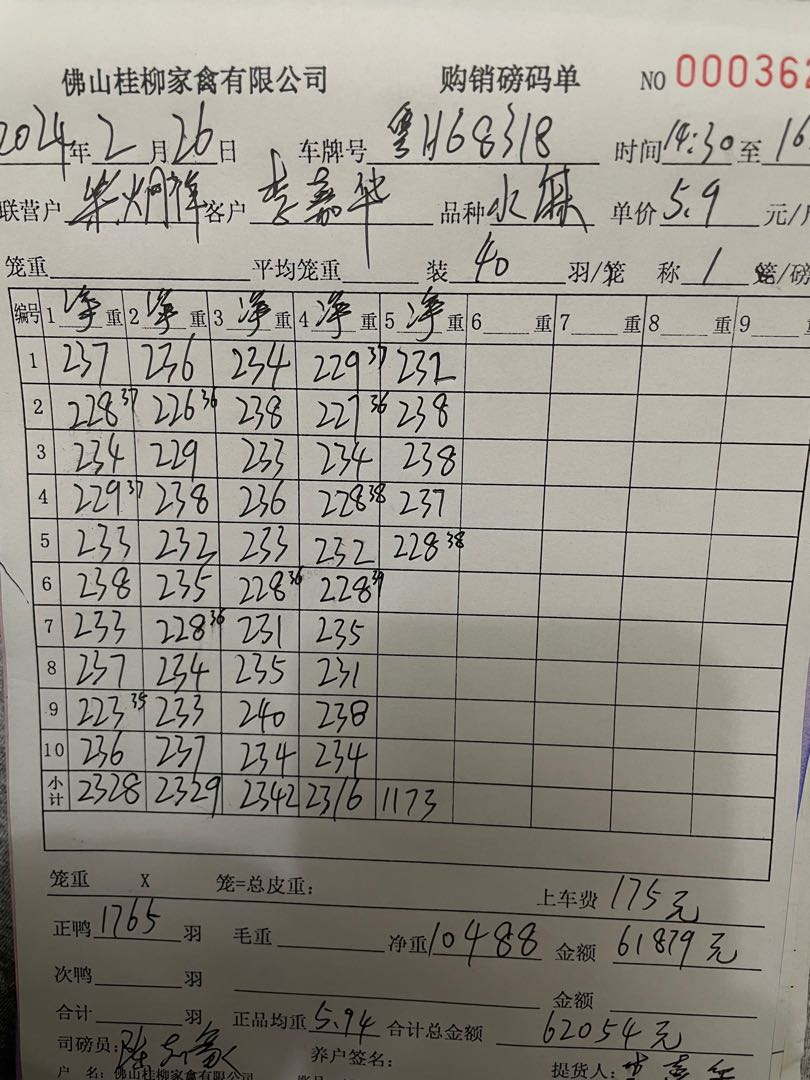 佛山桂柳家禽有限公司 购销磅码单 NO 000362
2024年2月26日 车牌号 粤H68318 时间 14:30 至 16
联营户 客户 李嘉华 品种 水麻 单价 5.9 元/
笼重 平均笼重 装 40 羽/笼 称 1 笼/磅
编号 1 净 重 2 净 重 3 净 重 4 净 重 5 净 重 6 重 7 重 8 重 9
1 237 236 234 229 37 232
2 228 37 226 36 238 227 36 238
3 234 229 233 234 238
4 229 37 238 236 228 38 237
5 233 232 233 232 228 38
6 238 235 228 36 228 39
7 233 228 36 231 235
8 237 234 235 231
9 223 35 233 240 238
10 236 237 234 234
小计 2328 2329 2342 2316 1173
笼重 X 笼=总皮重: 上车费 175元
正鸭 1765 羽 毛重 净重 10488 金额 61879元
次鸭 羽 金额
合计 羽 正品均重 5.94 合计总金额 62054元
司磅员: 养户签名: 提货人:
户 名: 佛山桂柳家禽有限公司